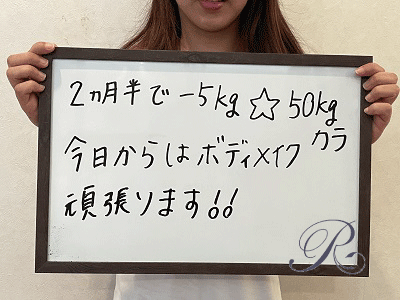 2ヵ月半で-5kg☆50kg
カラ
今日からはボディメイク
頑張ります!!
R